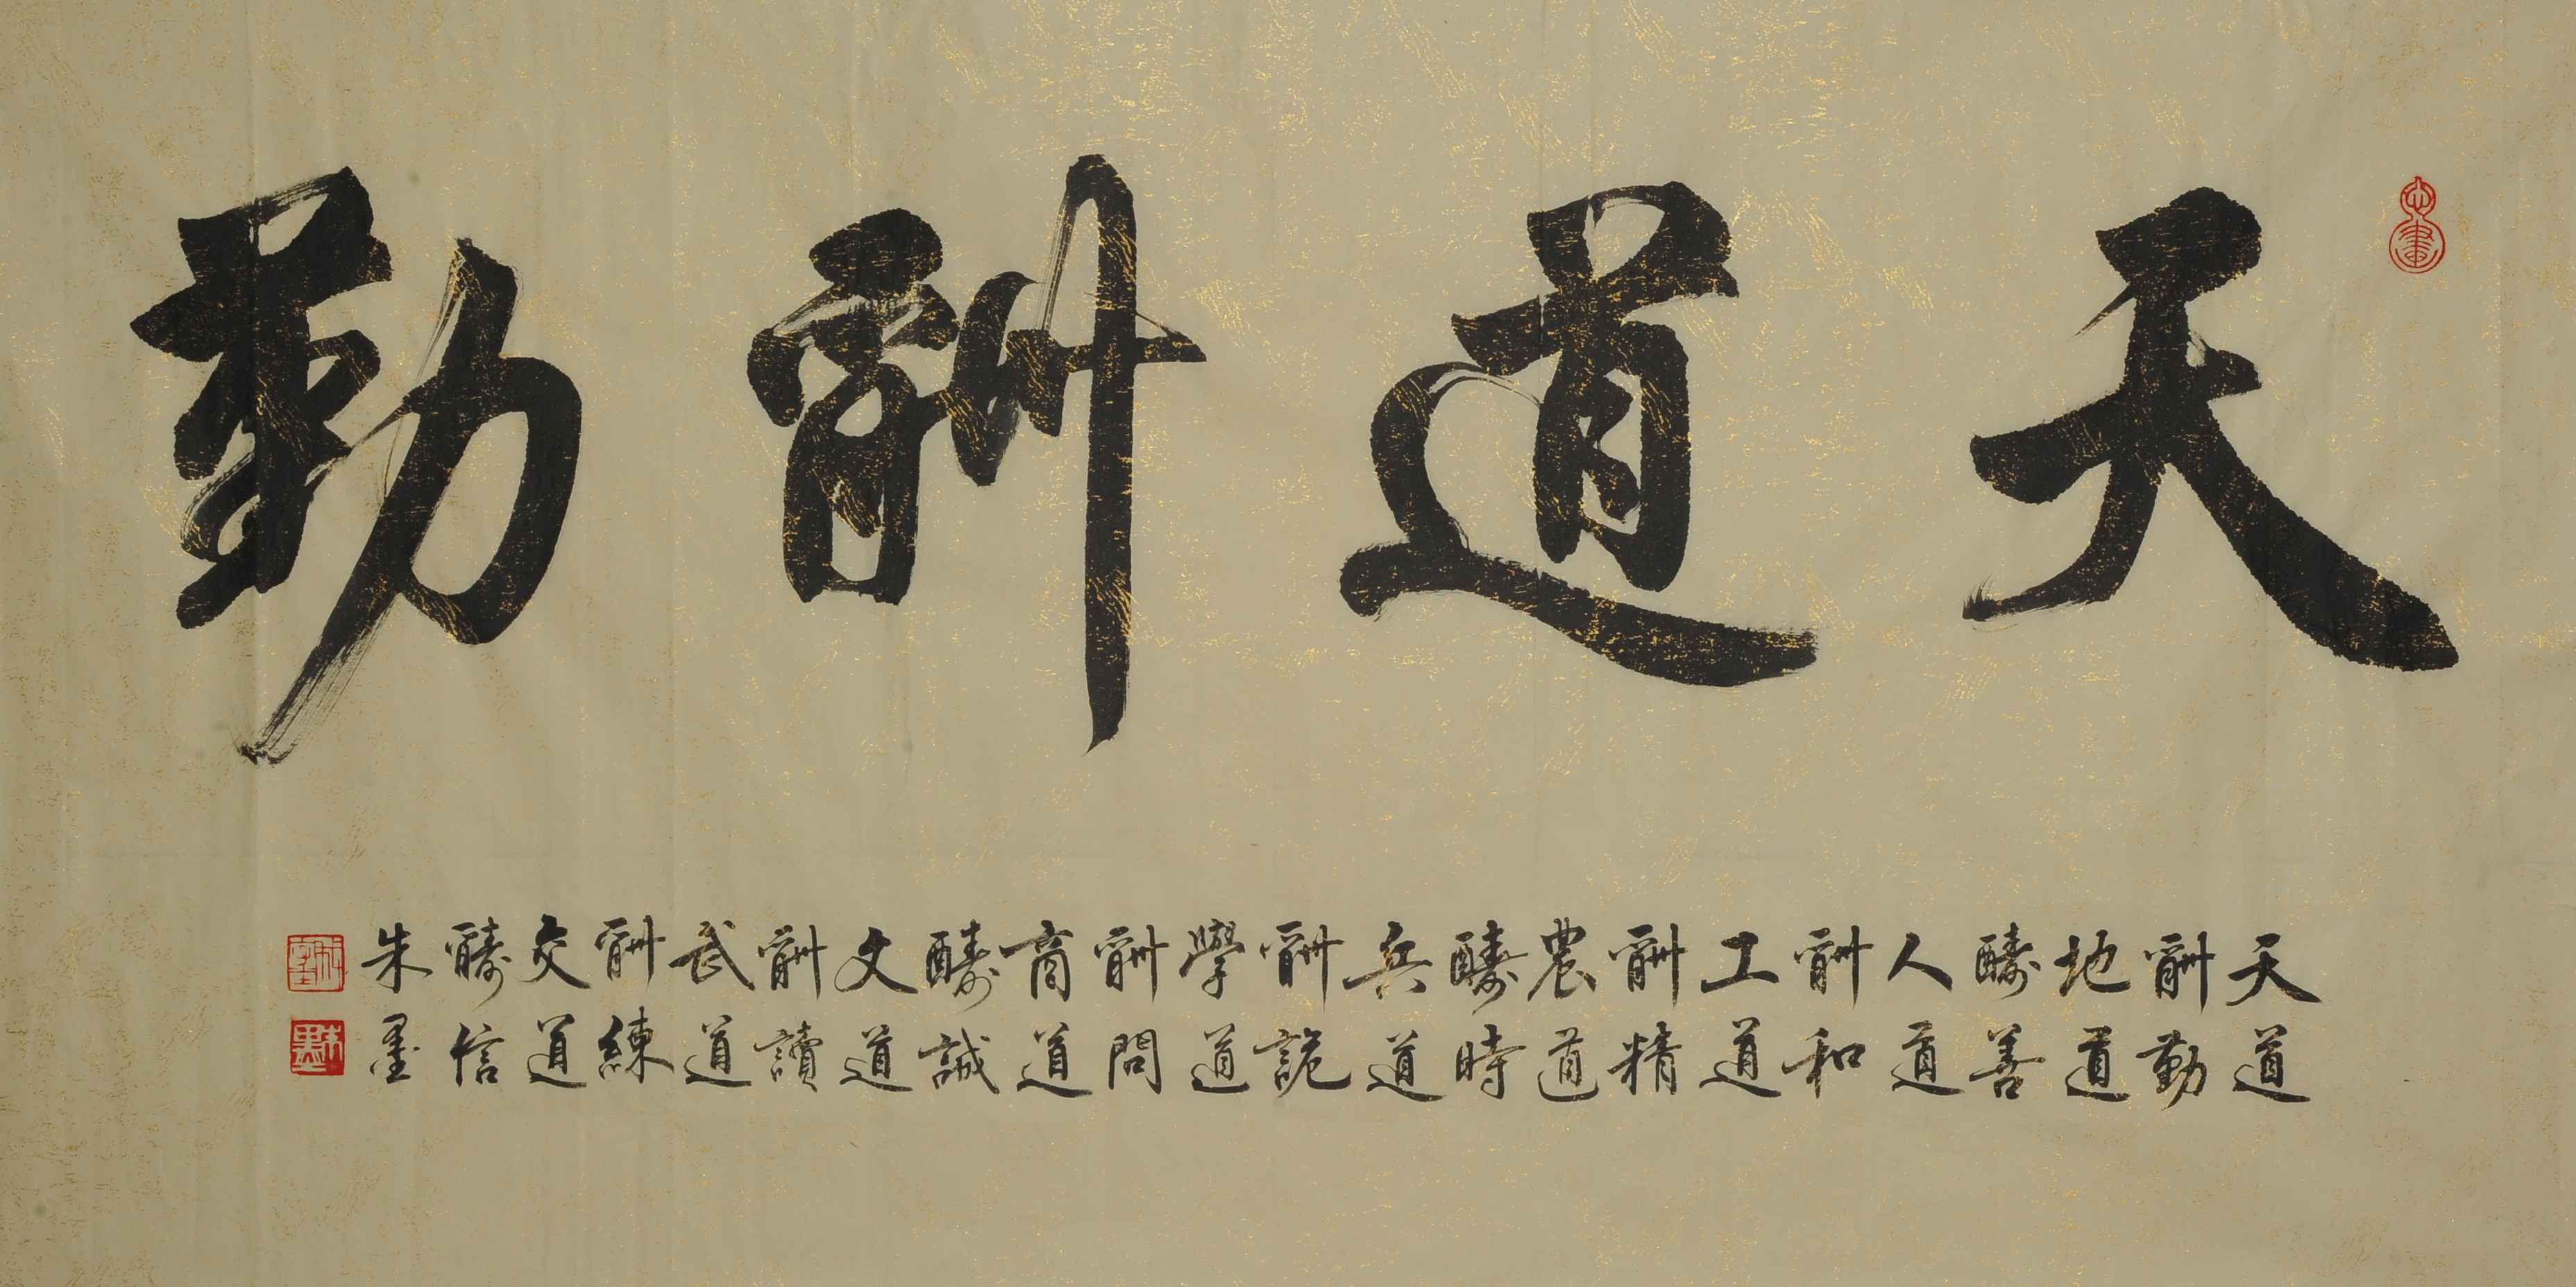 天道酬勤
天道
酬勤
地道
醻善
人道
酬和
工道
酬精
農道
醻時
兵道
酬詭
學道
酬問
商道
醻誠
文道
酬讀
武道
酬練
交道
醻信
朱墨